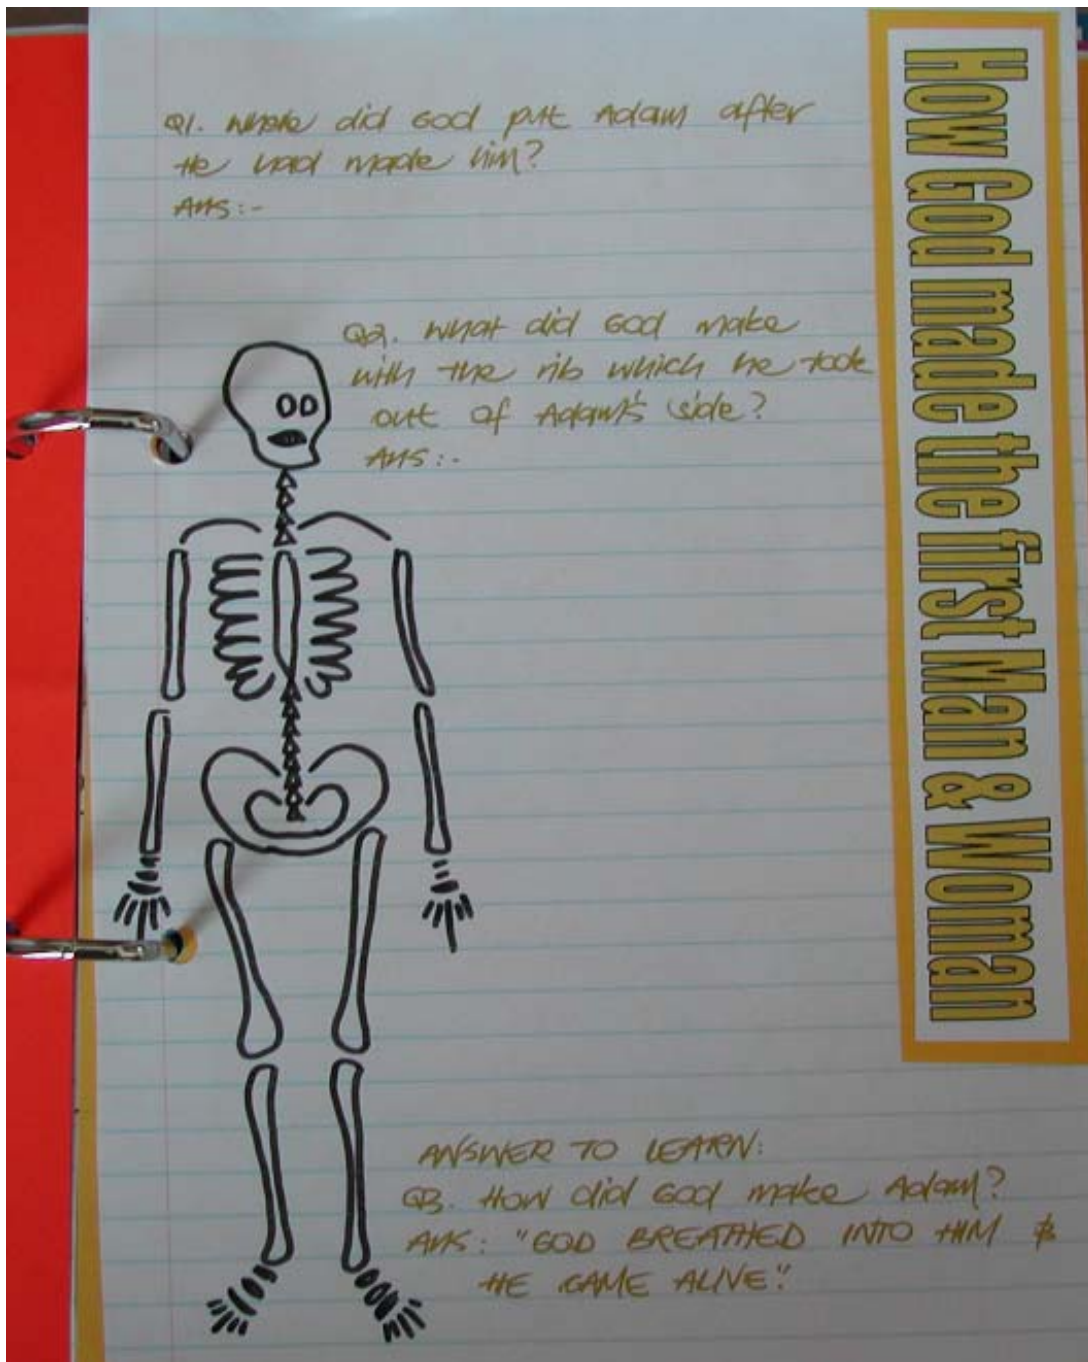 How God made the first Man & Woman
Q1. Where did God put Adam after
He had made him?
Ans:-
Q2. What did God make
with the rib which he took
out of Adam's side?
Ans:-
ANSWER TO LEARN:
Q3. How did God make Adam?
Ans: "GOD BREATHED INTO HIM &
HE CAME ALIVE."